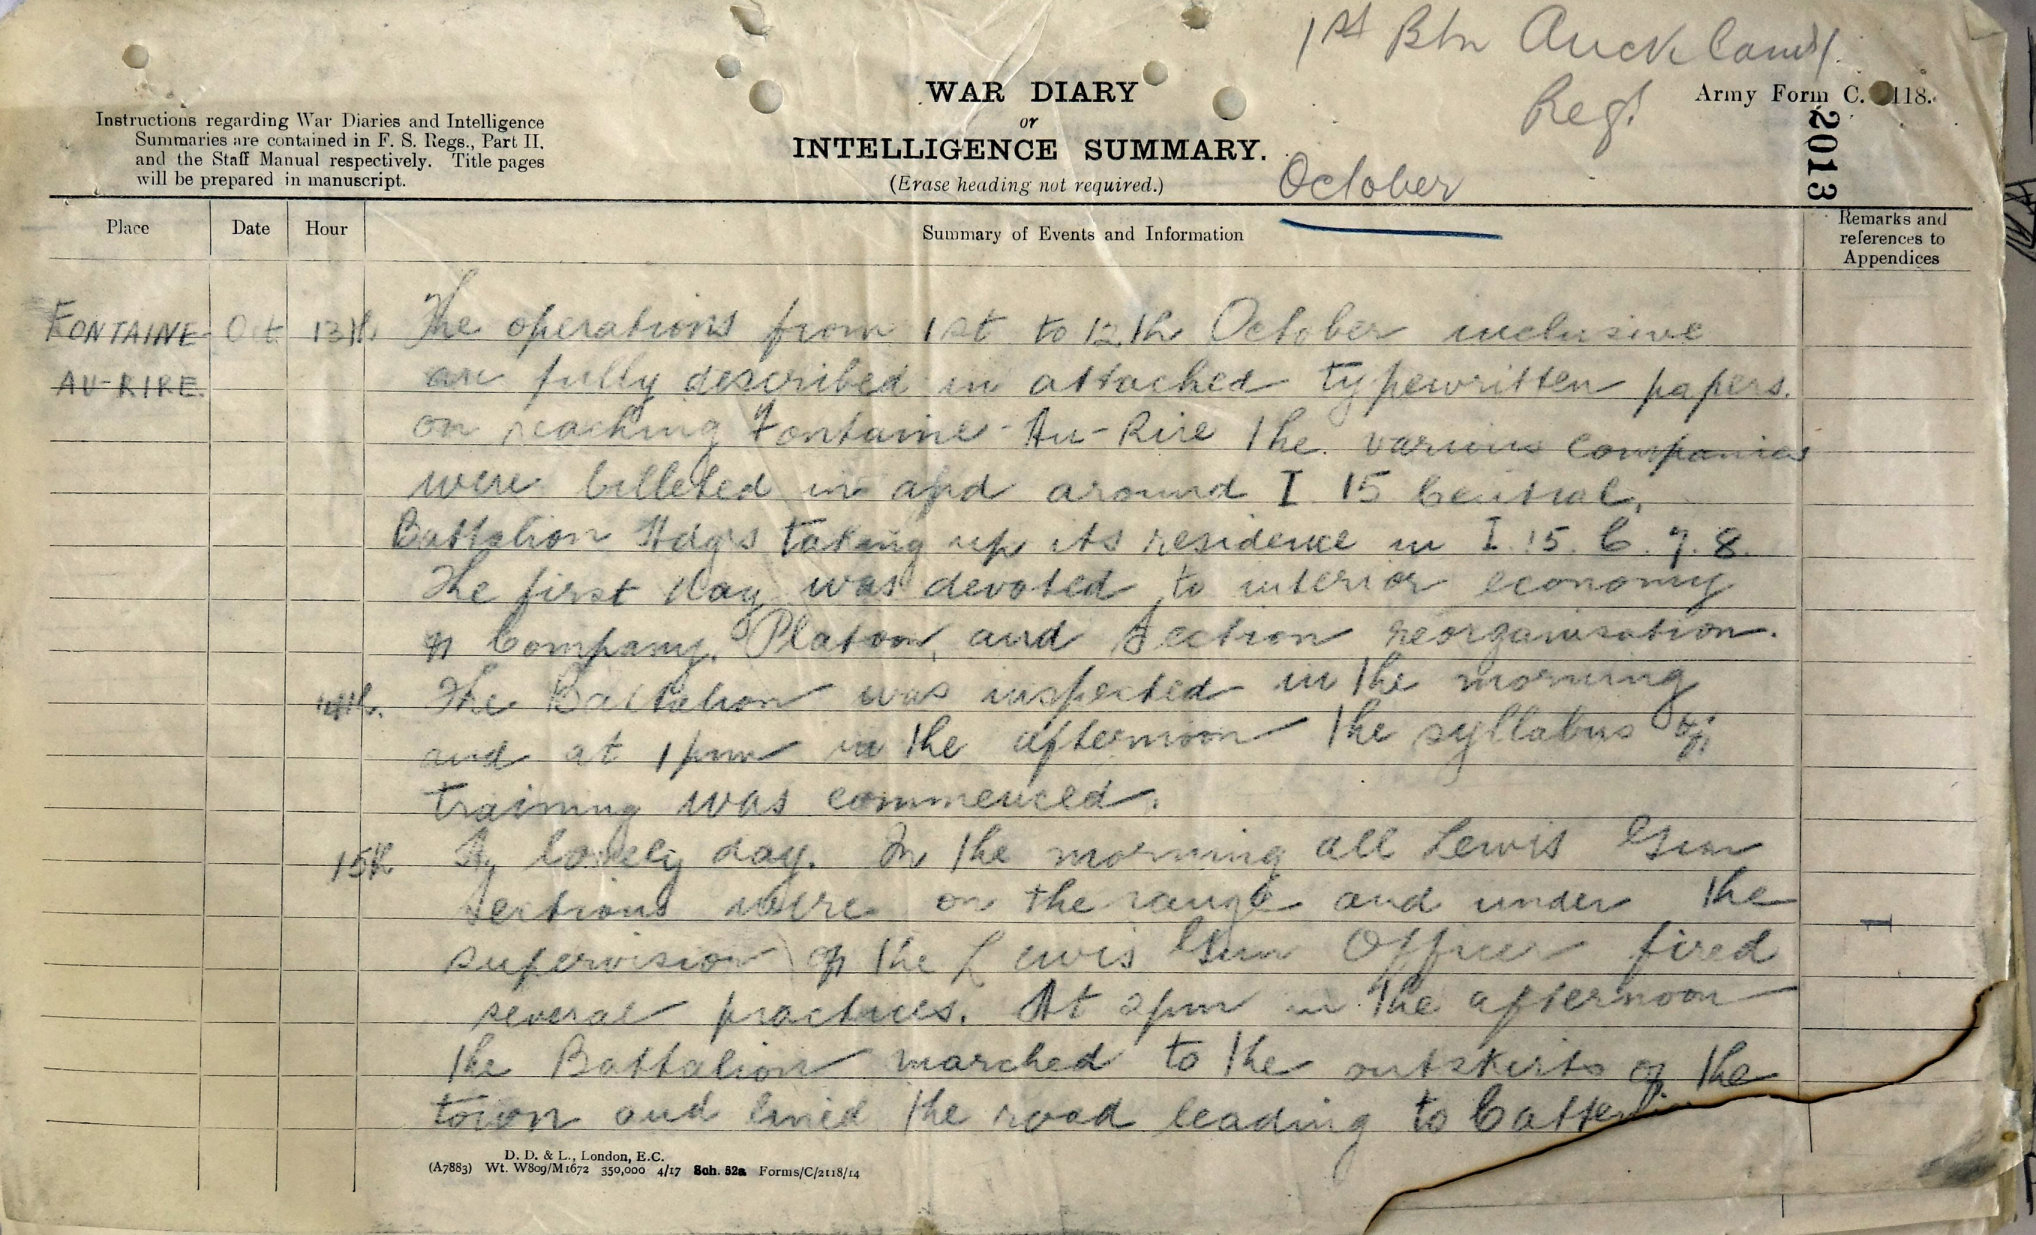 1st Btn Auckland
Regt
WAR DIARY
or
INTELLIGENCE SUMMARY.
(Erase heading not required.)
October
Army Form C. 2118.
2013
Instructions regarding War Diaries and Intelligence
Summaries are contained in F. S. Regs., Part II.
and the Staff Manual respectively. Title pages
will be prepared in manuscript.
Place Date Hour Summary of Events and Information Remarks and
references to
Appendices
FONTAINE- Oct 13th. The operations from 1st to 12th October inclusive
AU-RIRE. are fully described in attached typewritten papers.
on reaching Fontaine-Au-Rire the various companies
were billeted in and around I 15 Central,
Battalion Hdqrs taking up its residence in I.15.C.7.8.
The first day was devoted to interior economy
of Company, Platoon, and Section reorganisation.
14th. The Battalion was inspected in the morning
and at 1pm in the afternoon the syllabus of
training was commenced.
15th A lovely day. In the morning all Lewis Gun
sections were on the range and under the
supervision of the Lewis Gun Officer fired
several practices. At 2pm in the afternoon
the Battalion marched to the outskirts of the
town and lined the road leading to
D. D. & L., London, E.C.
(A7883) Wt. W809/M1672 350,000 4/17 Sch. 52a Forms/C/2118/14